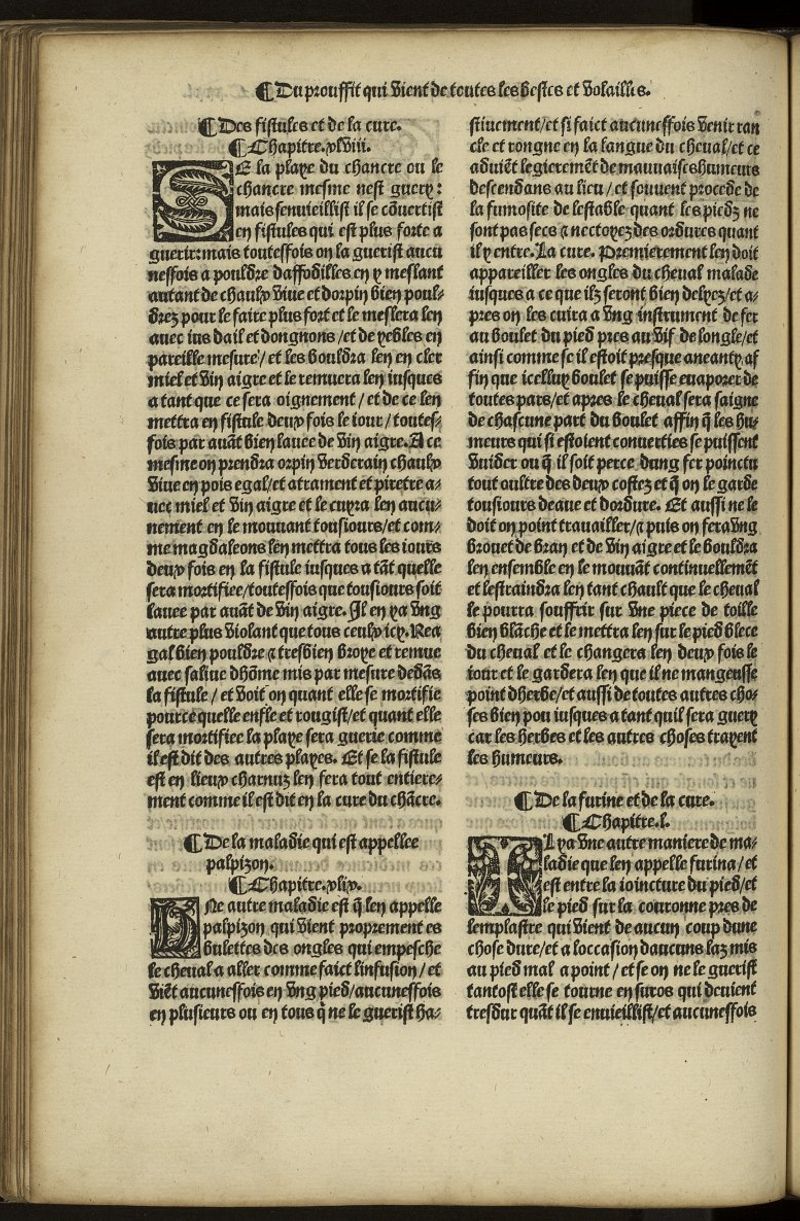 ¶Du prouffit qui vient de toutes les bestes et volailles.
¶Des fistules et de la cure.
¶Chapitre.xlviii.
SE la playe du chancre ou le
chancre mesme nest guery:
mais senuieillist il se cõuertist
en fistules qui est plus forte a
guerir: mais toutesfois on la guerist aucu
neffois a pouldre daffodilles en y meslant
autant de chaulx viue et dorpin bien poul-
drez pour le faire plus fort et le meslera len
auec ius dail et dongnons /et de yebles en
pareille mesure/ et les bouldra len en cler
miel et vin aigre et le remuera len iusques
a tant que ce sera oignement / et de ce len
mettra en fistule deux fois le iour / toutes-
fois par auãt bien lauee de vin aigre. A ce
mesme on prendra orpin verderain chaulx
viue en pois egal/et atrament et piretre a-
uec miel et vin aigre et le cuyra len aucu-
nement en le mouuant tousiours/et com-
me magdaleons len mettra tous les iours
deux fois en la fistule iusques a tãt quelle
sera mortifiee/toutesfois que tousiours soit
lauee par auãt de vin aigre. Il en ya vng
autre plus violant que tous ceulx icy. Rea
gal bien pouldre ⁊ tresbien broye et remue
auec saliue dhõme mis par mesure dedãs
la fistule / et voit on quant elle se mortifie
pource quelle enfle et rougist/et quant elle
sera mortifiee la playe sera guerie comme
il est dit des autres playes. Et se la fistule
est en lieux charnuz len fera tout entiere-
ment comme il est dit en la cure du chãcre.
¶De la maladie qui est appellee
palpizon.
¶Chapitre.xlix.
VNe autre maladie est q̃ len appelle
palpizon qui vient proprement es
bulettes des ongles qui empesche
le cheual a aller comme faict linfusion / et
viẽt aucuneffois en vng pied/aucuneffois
en plusieurs ou en tous q̃ ne le guerist ha-
stiuement/et si faict aucuneffois venir ran
cle et rongne en la langue du cheual/et ce
aduiẽt legieremẽt de mauuaises humeurs
descendans au lieu /et souuent procede de
la fumosite de lestable quant les piedz ne
sont pas secs ⁊ nectoyez des ordures quant
il y entre. La cure. Premierement len doit
appareiller les ongles du cheual malade
iusques a ce que ilz seront bien delyez/et a-
pres on les cuira a vng instrument de fer
au boulet du pied pres au vif de longle/et
ainsi comme se il estoit presque aneanty af
fin que icelluy boulet se puisse euaporer de
toutes pars/et apres le cheual sera saigne
de chascune part du boulet affin q̃ les hu-
meurs qui si estoient conuerties se puissent
vuider ou q̃ il soit perce dung fer poinctu
tout oultre des deux costez et q̃ on le garde
tousiours deaue et dordure. Et aussi ne le
doit on point trauailler/⁊ puis on fera vng
brouet de bran et de vin aigre et le bouldra
len ensemble en le mouuãt continuellemẽt
et lestraindra len tant chault que le cheual
le pourra souffrir sur vne piece de toille
bien blãche et le mettra len sur le pied blece
du cheual et le changera len deux fois le
iour et le gardera len que il ne mangeusse
point dherbe/et aussi de toutes autres cho-
ses bien pou iusques a tant quil sera guery
car les herbes et les autres choses trayent
les humeurs.
¶De la furine et de la cure.
¶Chapitre.l.
IL ya vne autre maniere de ma-
ladie que len appelle furina / et
est entre la ioincture du pied/et
le pied sur la couronne pres de
lemplastre qui vient de aucun coup dune
chose dure/et a loccasion daucuns laz mis
au pied mal a point / et se on ne le guerist
tantost elle se tourne en suros qui deuient
tresdur quãt il se enuieillist/et aucuneffois